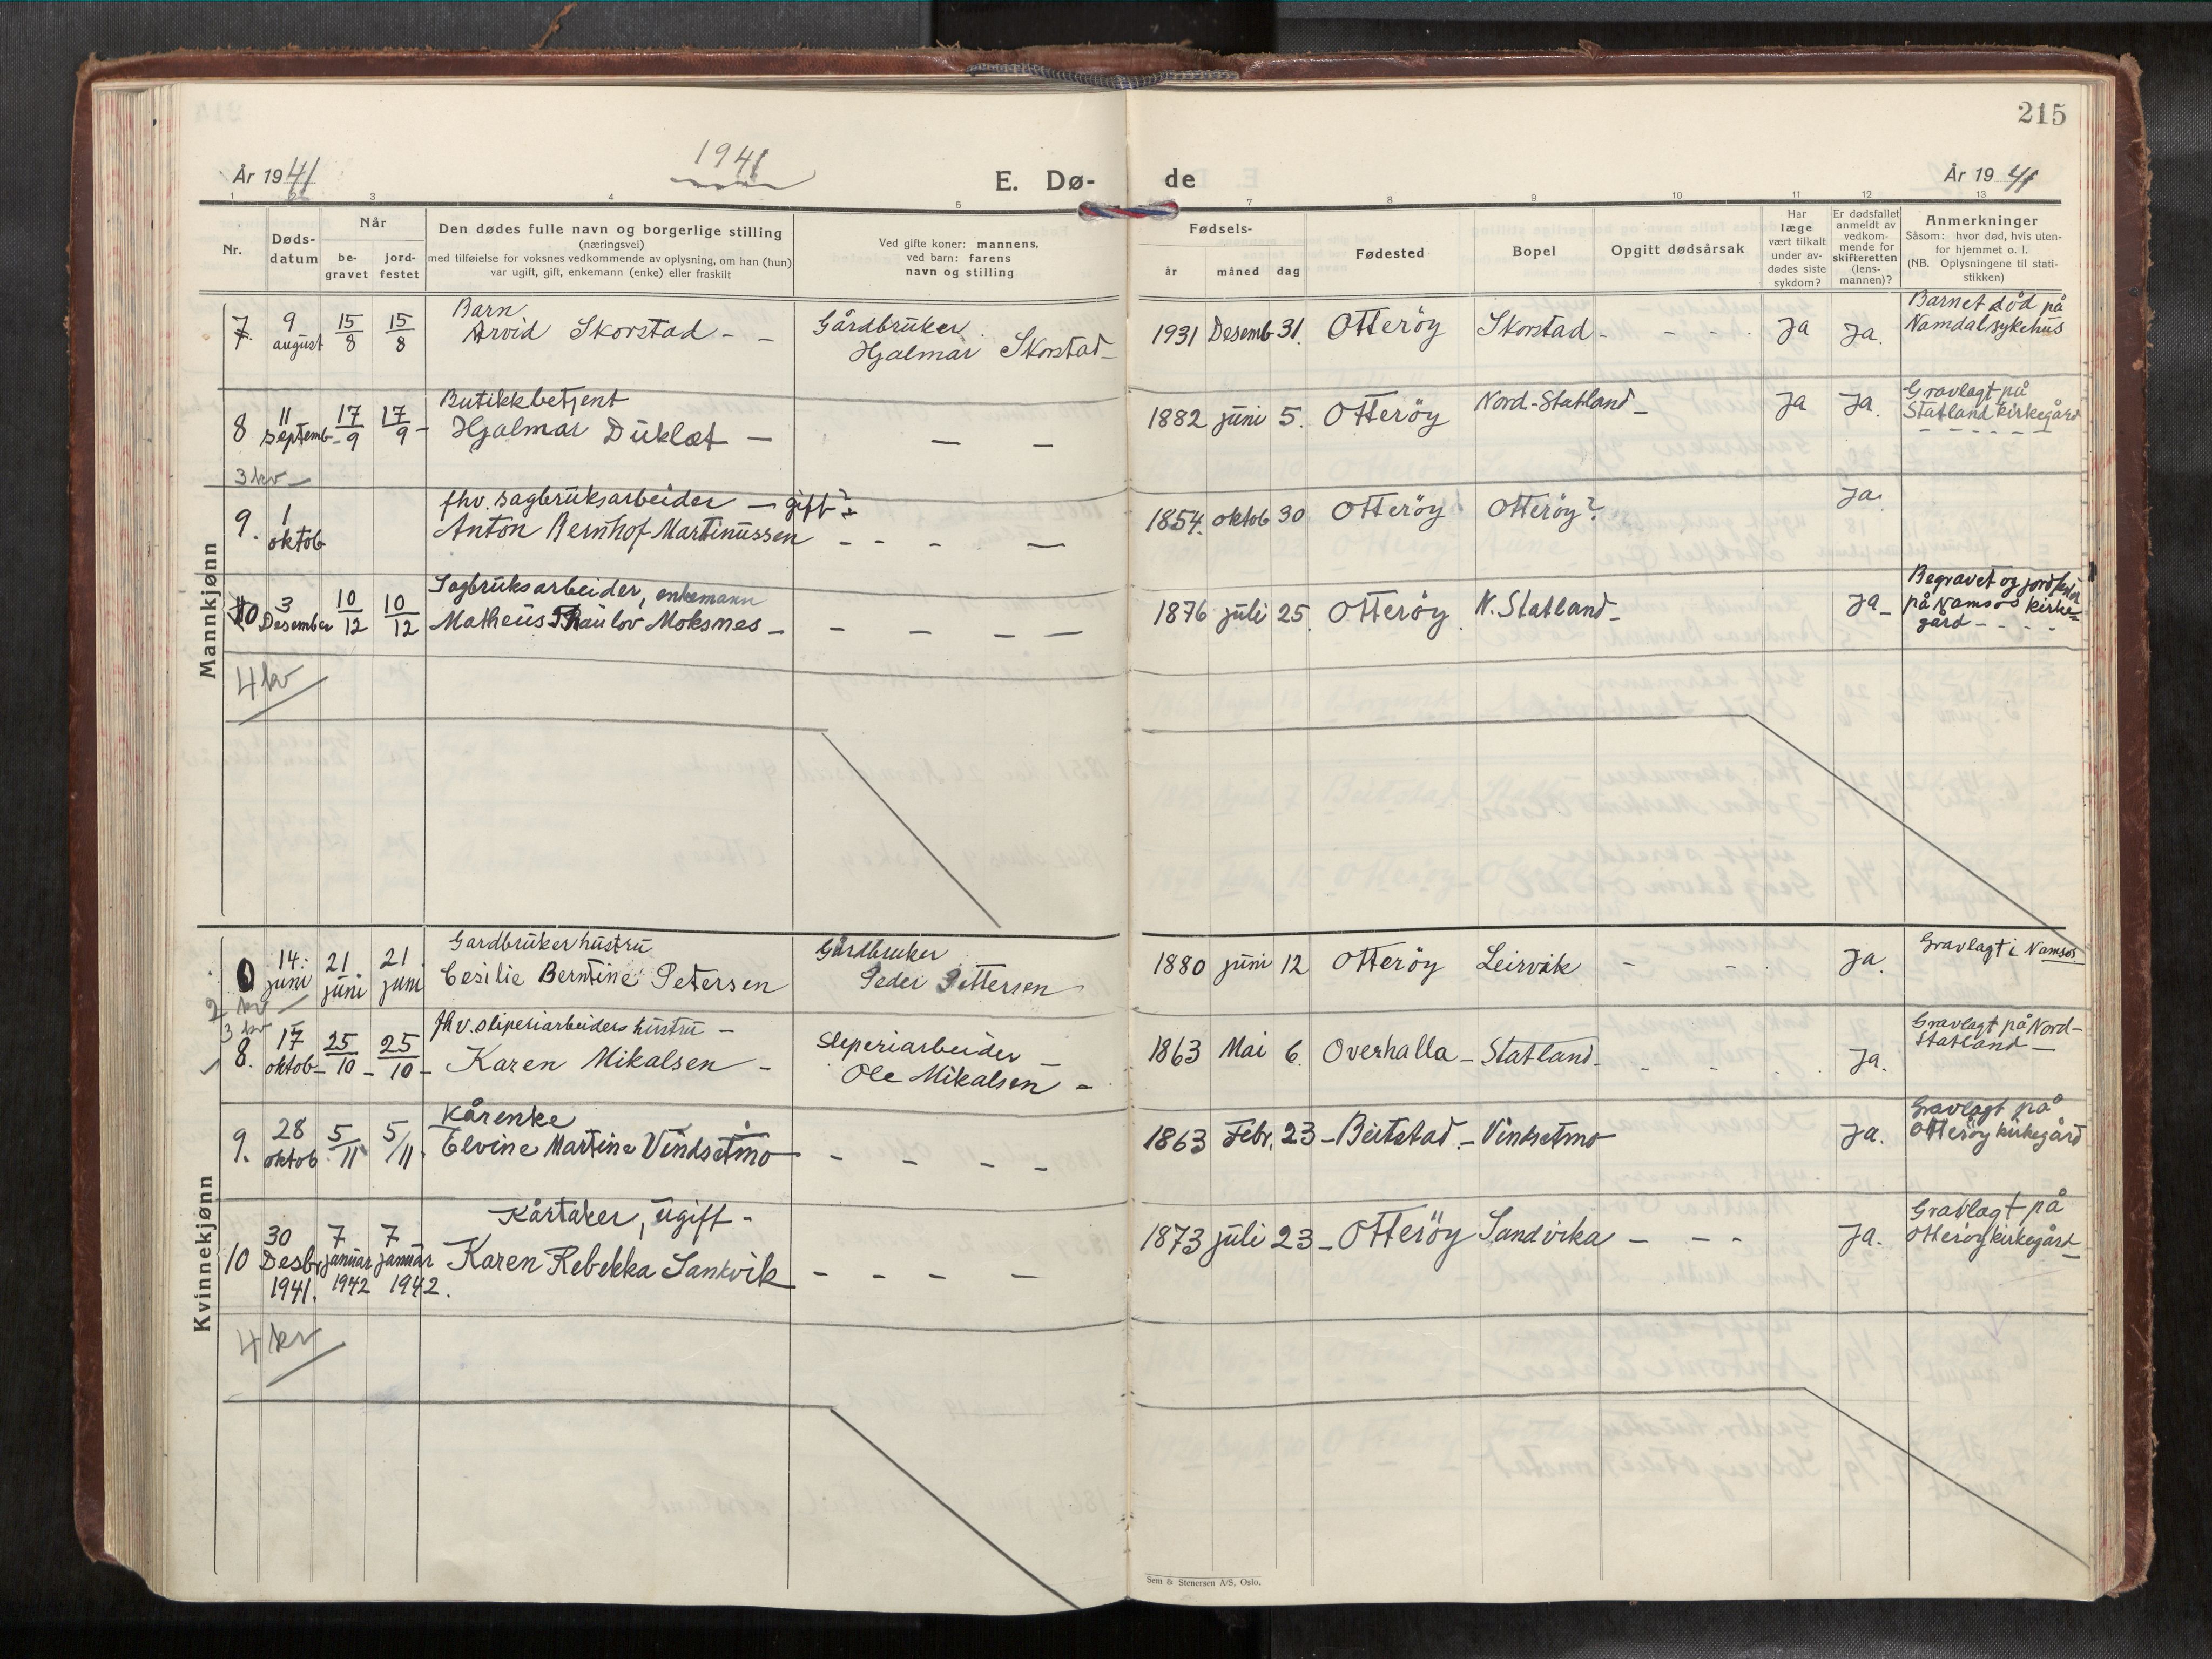 215
1941
År 1941
E. Dø-
de
År 1941
1 2 3 4 5 7 8 9 10 11 12 13
Nr.
Døds-
datum
Når
be-
gravet
jord-
festet
Den dødes fulle navn og borgerlige stilling
(næringsvei)
med tilføielse for voksnes vedkommende av oplysning, om han (hun)
var ugift, gift, enkemann (enke) eller fraskilt
Ved gifte koner: mannens,
ved barn: farens
navn og stilling
Fødsels-
år måned dag
Fødested
Bopel
Opgitt dødsårsak
Har
læge
vært tilkalt
under av-
dødes siste
sykdom?
Er dødsfallet
anmeldt av
vedkom-
mende for
skifteretten
(lens-
mannen)?
Anmerkninger
Såsom: hvor død, hvis uten-
for hjemmet o. l.
(NB. Oplysningene til stati-
stikken)
Mannkjønn
7. 9 august 15/8 15/8
Barn
Arvid Skorstad - -
Gårdbruker
Hjalmar Skorstad -
1931 Desemb 31. Otterøy Skorstad - - - . Ja Ja.
Barnet død på
Namdal sykehus
8 11 septemb - 17/9 17/9 -
Butikkbetjent
Hjalmar Duklæt - - -
1882 juni 5. Otterøy Nord-Statland - Ja Ja.
Gravlagt på
Statland kirkegård
3 kv -
9. 1 oktob
fhv. sagbruksarbeider - gift?
Anton Bernhof Martinussen - - - -
1854. oktob 30 Otterøy Otterøy? Ja.
10 3 Desember 10/12 10/12
Sagbruksarbeider, enkemann
Matheus Thaulov Moksnes - - - - -
1876 juli 25. Otterøy. N. Statland - Ja -
Begravet og jordfestet
på Namsos kirke-
gård - - - -
4 kv
Kvinnekjønn
14. juni 21 juni 21 juni
Gardbrukerhustru
Cesilie Berntine Petersen
Gårdbruker
Peder Pettersen
1880 juni 12 Otterøy Leirvik - - . Ja.
Gravlagt i Namsos
2 kv
3 kv
8. 17 oktob - 25/10 - 25/10 -
fhv. sliperiarbeiders hustru -
Karen Mikalsen -
Sleperiarbeider -
Ole Mikalsen -
1863 Mai 6. Overhalla - Statland - - . . . Ja.
Gravlagt på Nord-
Statland -
9. 28 oktob 5/11 5/11.
Kårenke
Elvine Martine Vindsetmo - - - -
1863 Febr. 23 - Beitstad - Vindsetmo Ja.
Gravlagt på
Otterøy kirkegård
10 30 Desbr 1941. 7 januar 1942 7 januar 1942.
Kårtaker, ugift -
Karen Rebekka Sandvik - - - -
1873 juli 23 - Otterøy Sandvika - - - Ja.
Gravlagt på
Otterøy kirkegård
4 kv
Sem & Stenersen A/S, Oslo.